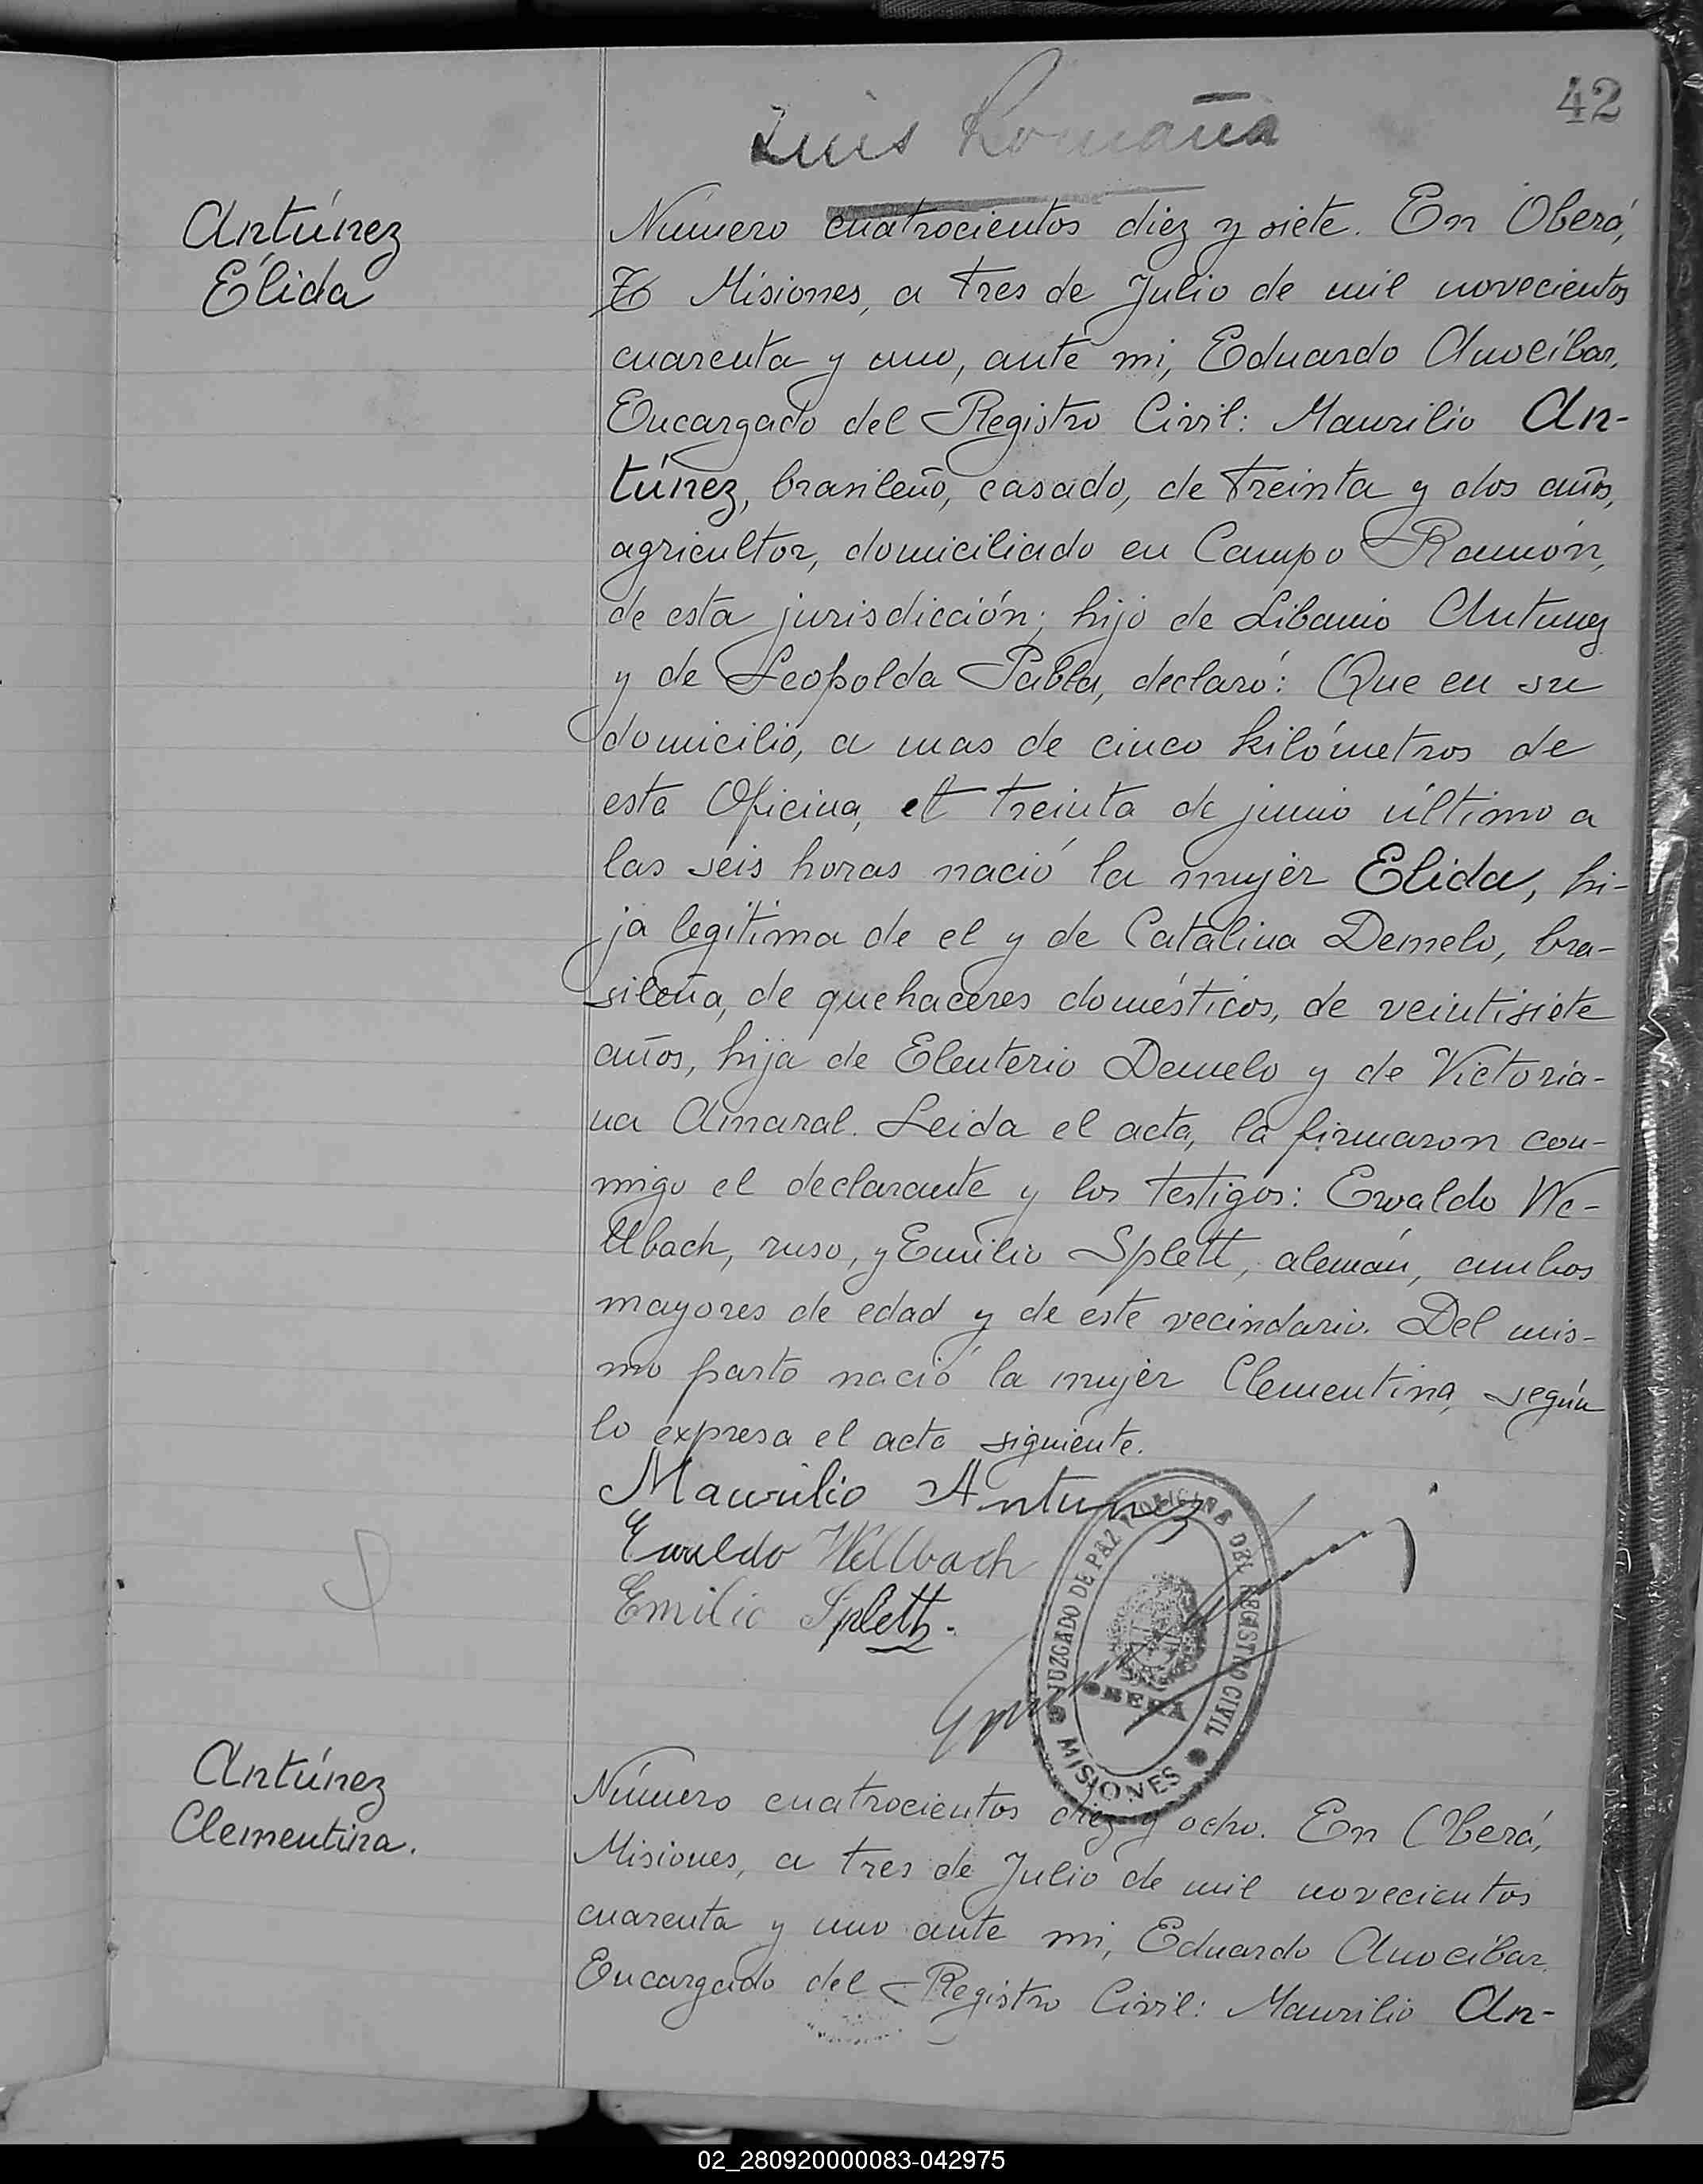 42
Luis Romaña
Antúnez
Élida
Número cuatrocientos diez y siete. En Oberá,
Misiones, a tres de Julio de mil novecientos
cuarenta y uno, ante mi, Eduardo Anocíbar,
Encargado del Registro Civil: Maurilio An-
túnez, brasileño, casado, de treinta y dos años,
agricultor, domiciliado en Campo Ramón,
de esta jurisdicción; hijo de Libanio Antunez
y de Leopolda Pabla, declaró: Que en su
domicilio, a mas de cinco kilómetros de
esta Oficina, el treinta de junio último a
las seis horas nació la mujer Elida, hi-
ja legítima de el y de Catalina Demelo, bra-
sileña, de quehaceres domésticos, de veintisiete
años, hija de Eleuterio Demelo y de Victoria-
na Amaral. Leida el acta, la firmaron con-
migo el declarante y los testigos: Ewaldo We-
llbach, ruso, y Emilio Splett, alemán, ambos
mayores de edad y de este vecindario. Del mis-
mo parto nació la mujer Clementina, según
lo expresa el acta siguiente.
Maurilio Antunez
Ewaldo Wellbach
Emilio Splett.
JUZGADO DE PAZ Y OFICINA DEL REGISTRO CIVIL
OBERA
MISIONES
Antúnez
Clementina.
Número cuatrocientos diez y ocho. En Oberá,
Misiones, a tres de Julio de mil novecientos
cuarenta y uno ante mi, Eduardo Anocíbar,
Encargado del Registro Civil: Maurilio An-
02_280920000083-042975